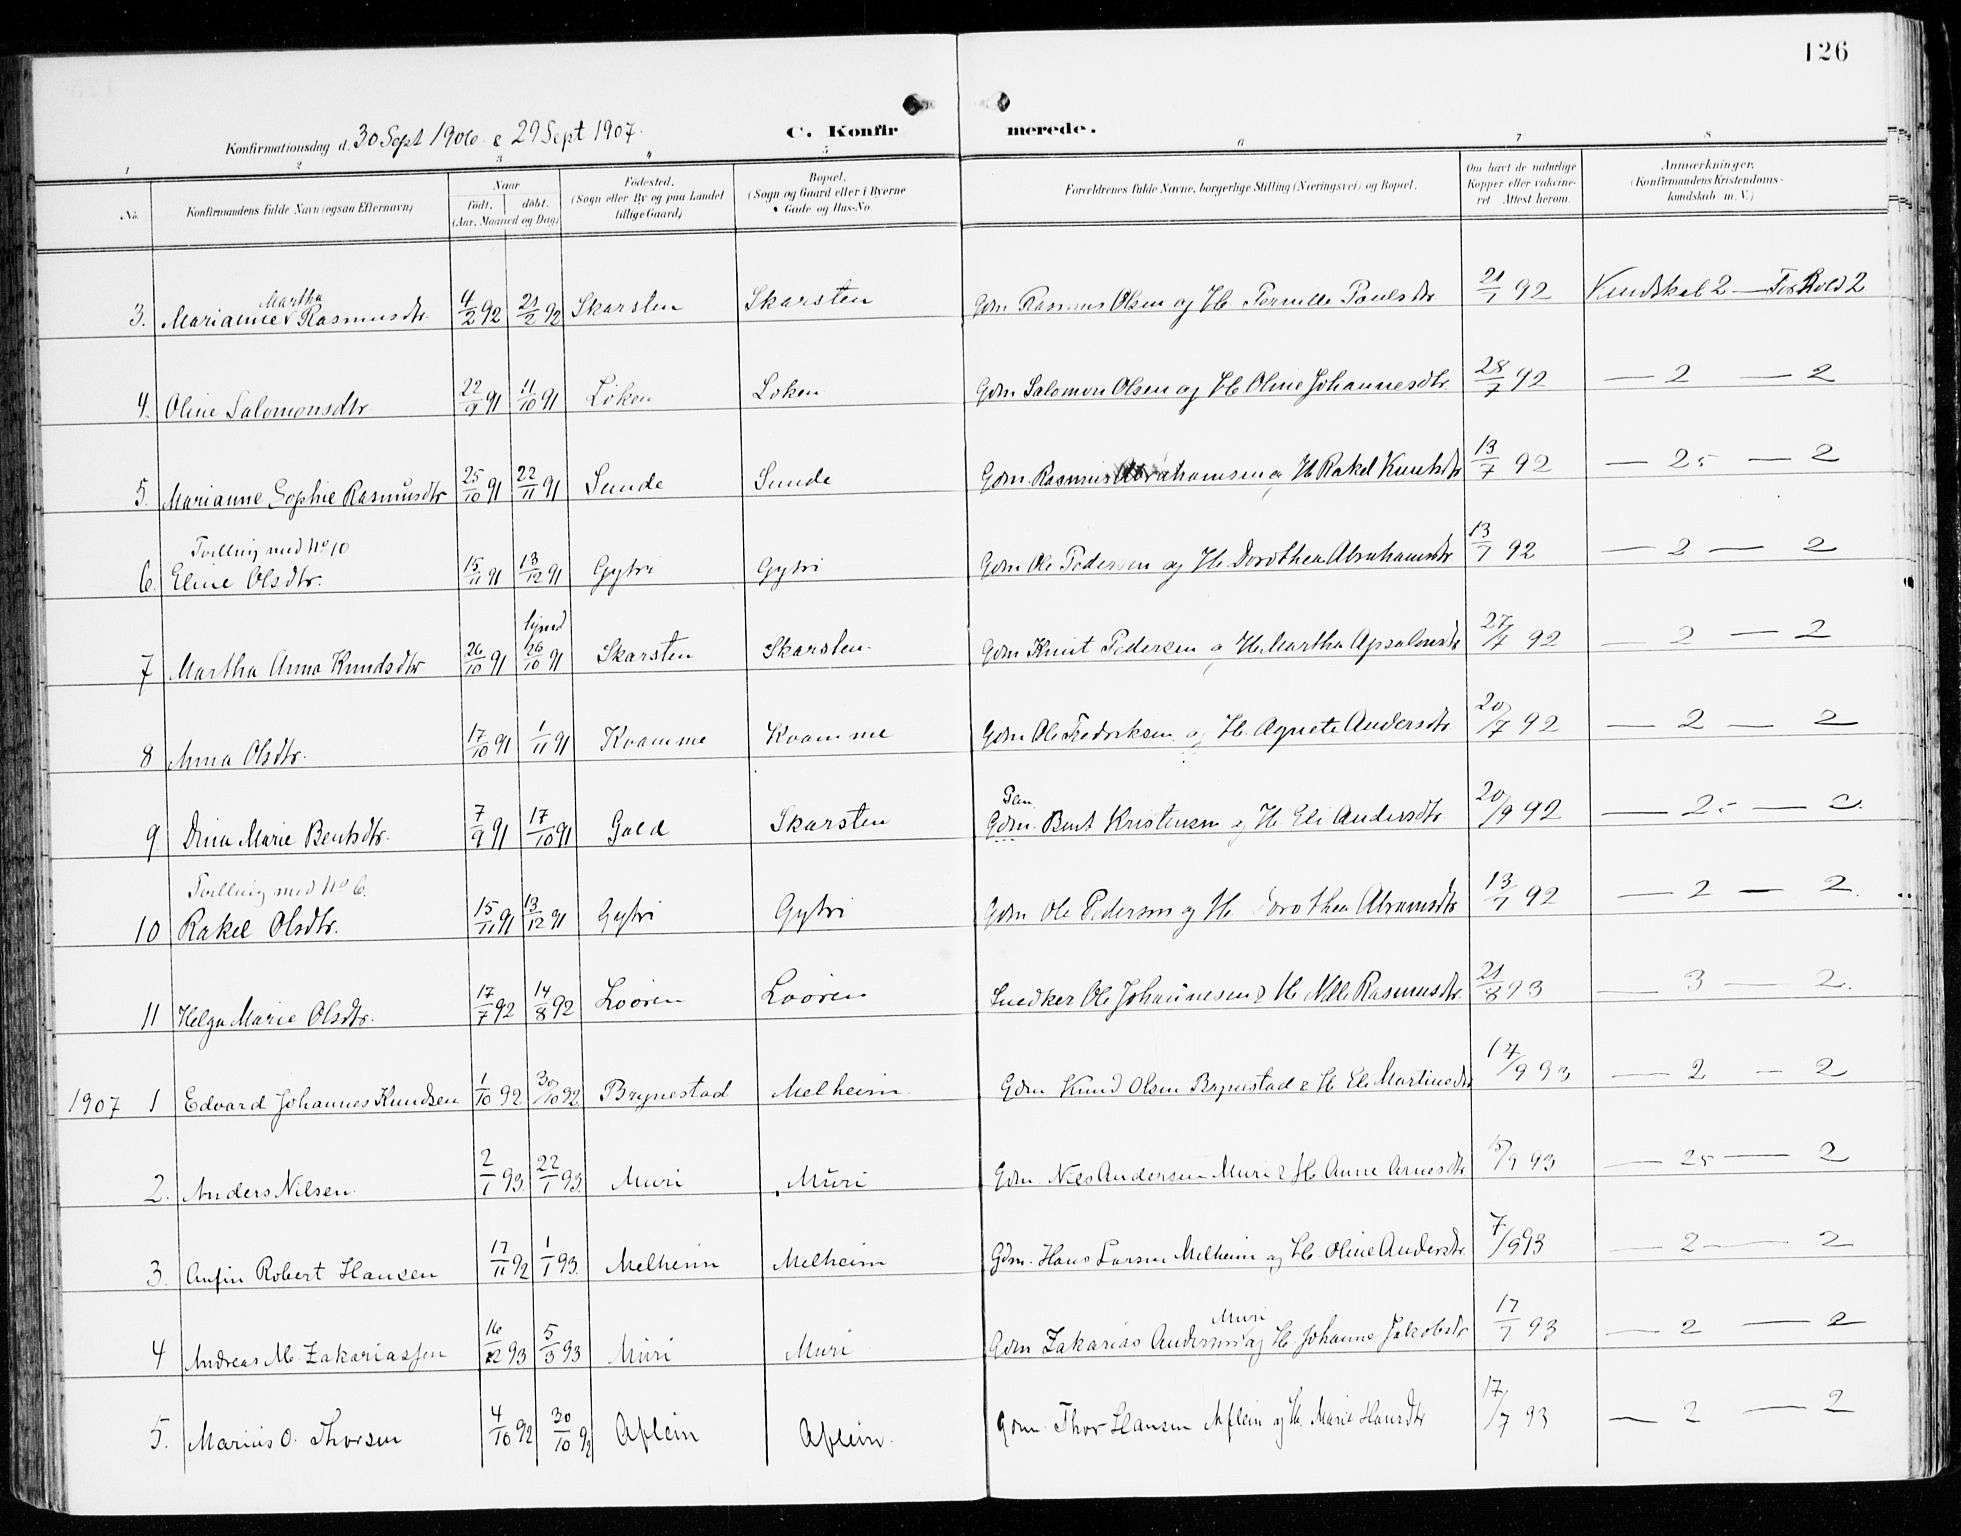 126
Konfirmationsdag d. 30 Sept 1906 & 29 Sept 1907. C. Konfirmerede.
1 2 3 4 5 6 7 8
No. Konfirmandens fulde Navn (ogsaa Efternavn) Naar født. døbt. (Aar, Maaned og Dag) Fødested. (Sogn eller By og paa Landet tillige Gaard) Bopæl. (Sogn og Gaard eller i Byerne Gade og Hus-No. Forældrenes fulde Navne, borgerlige Stilling (Næringsvei) og Bopæl. Om havt de naturlige Kopper eller vakcineret. Attest herom. Anmærkninger. (Konfirmandens Kristendomskundskab m. V.)
Martha
3. Marianne Rasmusdtr. 4/2 92 21/2 92 Skarsten Skarsten Gdm Rasmus Olsen og H. Pernille Paulsdtr 21/7 92 Kundskab 2 — Forhold 2
4. Oline Salomonsdtr 22/9 91 11/10 91 Löken Loken Gdm Salomon Olsen og H. Oline Johannesdtr 28/7 92 — 2 — 2
5. Marianne Sophie Rasmusdtr 25/10 91 22/11 91 Sunde Sunde Gdm. Rasmus Abrahamsen og H. Rakel Knutsdtr 13/7 92 — 2,5 — 2
Tvilling med No 10
6. Eline Olsdtr. 15/11 91 13/12 91 Gytri Gytri Gdm Ole Pedersen og H. Dorothea Abrahamsdtr 13/7 92 — 2 — 2
hjmd
7 Martha Anna Knudsdtr 26/10 91 26/10 91 Skarsten Skarsten. Gdm Knut Pedersen og H. Martha Apsalonsdtr 27/7 92 — 2 — 2
8 Anna Olsdtr. 17/10 91 1/11 91 Kvamme Kvamme Gdm Ole Fredriksen og H. Agnete Andersdtr 20/7 92 — 2 — 2
9 Dina Marie Bentsdtr. 7/9 91 17/10 91 Gald Skarsten Gdm. Bent Kristensen og H. Eli Andersdtr 20/9 92 — 2,5 — 2.
Tvilling med No 6.
10 Rakel Olsdtr. 15/11 91 13/12 91 Gytri Gytri Gdm Ole Pedersen og H. Dorothea Abramsdtr 13/7 92 — 2 — 2.
11 Helga Marie Olsdtr. 17/7 92 14/8 92 Loören Loören Snedker Ole Johannesen & H. Rasmusdtr. 21/8 93 — 3 — 2.
1907 1 Edvard Johannes Knudsen 1/10 92 30/10 92 Brynestad Melheim. Gdm Knud Olsen Brynestad & H. Eli Martinedtr 17/9 93 — 2 — 2
2. Anders Nilsen 2/1 93. 22/1 93. Muri Muri Gdm. Nils Andersen Muri & H. Anne Arnesdtr 5/9 93 — 2,5 — 2
3. Anfin Robert Hansen 17/11 92 1/1 93. Melheim Melheim Gdm. Hans Larsen Melheim og H. Oline Andersdtr. 7/9 93 — 2 — 2
Muri
4 Andreas M. Zakariassen 16/12 93 5/3 93 Muri Muri Gdm Zakarias Andersen og H. Johanne Jakobsdtr 17/7 93 — 2 — 2
5. Marius O. Thorsen 4/10 92 30/10 92 Aflein Aflein. Gdm. Thor Hansen Aflein og H. Marie Hansdtr 17/7 93 — 2 — 2